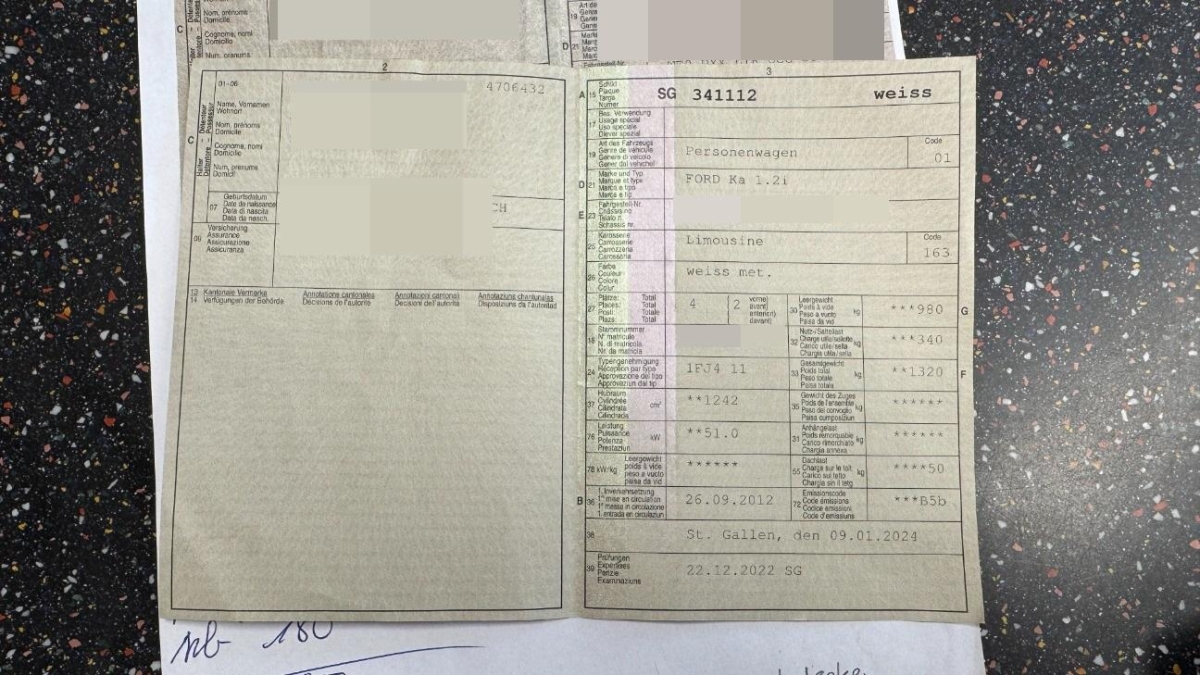 Nom, prénoms
Domicile
C
Cognome, nomi
Domicilio
Num, prenums
19
D 21
2
3
01-06
4706432
Name, Vornamen
Wohnort
Nom, prénoms
Domicile
C
Cognome, nomi
Domicilio
Num, prenums
Domicil
07
Geburtsdatum
Date de naissance
Data di nascita
Data da nasch.
CH
09
Versicherung
Assurance
Assicurazione
Assicuranza
13
14
Kantonale Vermerke
Verfügungen der Behörde
Annotations cantonales
Décisions de l'autorité
Annotazioni cantonali
Decisioni dell'autorità
Annotaziuns chantunalas
Disposiziuns da l'autoritad
A 15
Schild
Plaque
Targa
Numer
SG 341112 weiss
17
Bes. Verwendung
Usage spécial
Uso speciale
Diever spezial
19
Art des Fahrzeugs
Genre de véhicule
Genere di veicolo
Gener dal vehichel
Personenwagen
Code
01
D 21
Marke und Typ
Marque et type
Marca e tipo
Marca e tip
FORD Ka 1.2i
E 23
Fahrgestell-Nr.
Châssis no
Telaio n.
Schassis nr.
25
Karosserie
Carrosserie
Carrozzeria
Carossaria
Limousine
Code
163
26
Farbe
Couleur
Colore
Colur
weiss met.
27
Plätze: Total
Places: Total
Posti: Totale
Plazs: Total
4
2
vorne)
avant)
anteriori)
davant)
30
Leergewicht
Poids à vide
Peso a vuoto
Paisa da vid
kg
***980
G
18
Stammnummer
N° matricule
N. di matricola
Nr. da matricla
32
Nutz-/Sattellast
Charge utile/sellette
Carico utile/sella
Chargia utila/sella
kg
***340
24
Typengenehmigung
Réception par type
Approvazione del tipo
Approvaziun dal tip
1FJ4 11
33
Gesamtgewicht
Poids total
Peso totale
Paisa totala
kg
**1320
F
37
Hubraum
Cylindrée
Cilindrata
Cilindrada
cm³
**1242
35
Gewicht des Zuges
Poids de l'ensemble
Peso del convoglio
Paisa cumposiziun
kg
******
76
Leistung
Puissance
Potenza
Prestaziun
kW
**51.0
31
Anhängelast
Poids remorquable
Carico rimorchiato
Chargia annexa
kg
******
78 kW/kg
Leergewicht
poids à vide
peso a vuoto
paisa da vid
******
55
Dachlast
Charge sur le toit
Carico sul tetto
Chargia sin il tetg
kg
****50
B 36
1. Inverkehrsetzung
1re mise en circulation
1a messa in circolazione
1. entrada en circulaziun
26.09.2012
72
Emissionscode
Code émissions
Codice emissioni
Code d'emissiuns
***B5b
38
St. Gallen, den 09.01.2024
39
Prüfungen
Expertises
Perizie
Examinaziuns
22.12.2022 SG
180